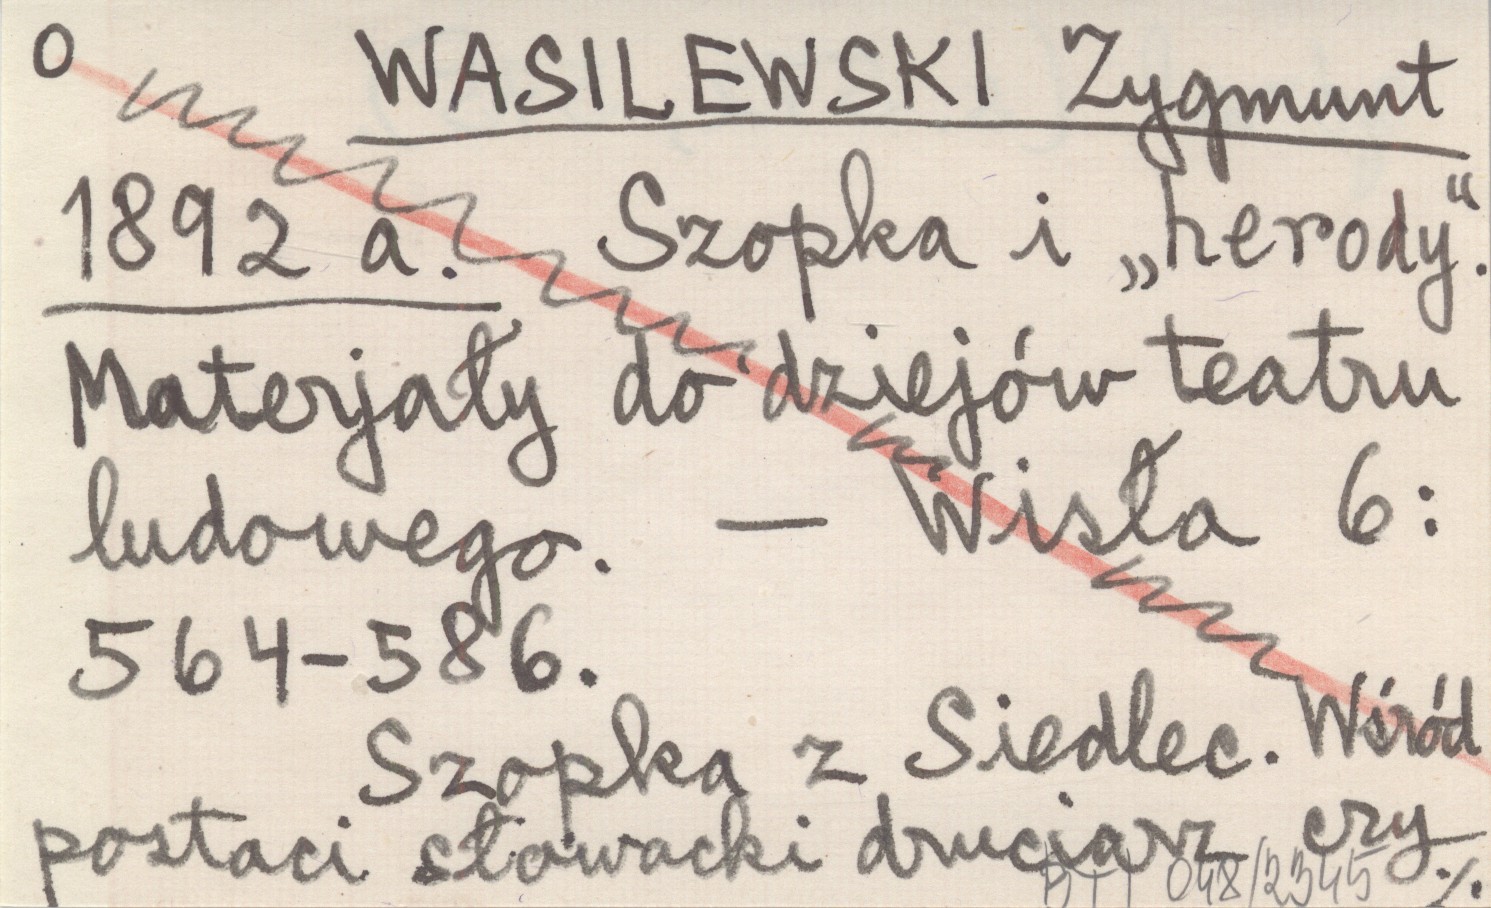 O WASILEWSKI Zygmunt
1892 a. Szopka i „herody".
Materjały do dziejów teatru
ludowego. — Wisła 6:
564-586.
Szopka z Siedlec. Wśród
postaci słowacki druciarz czy
048/2345 ./.